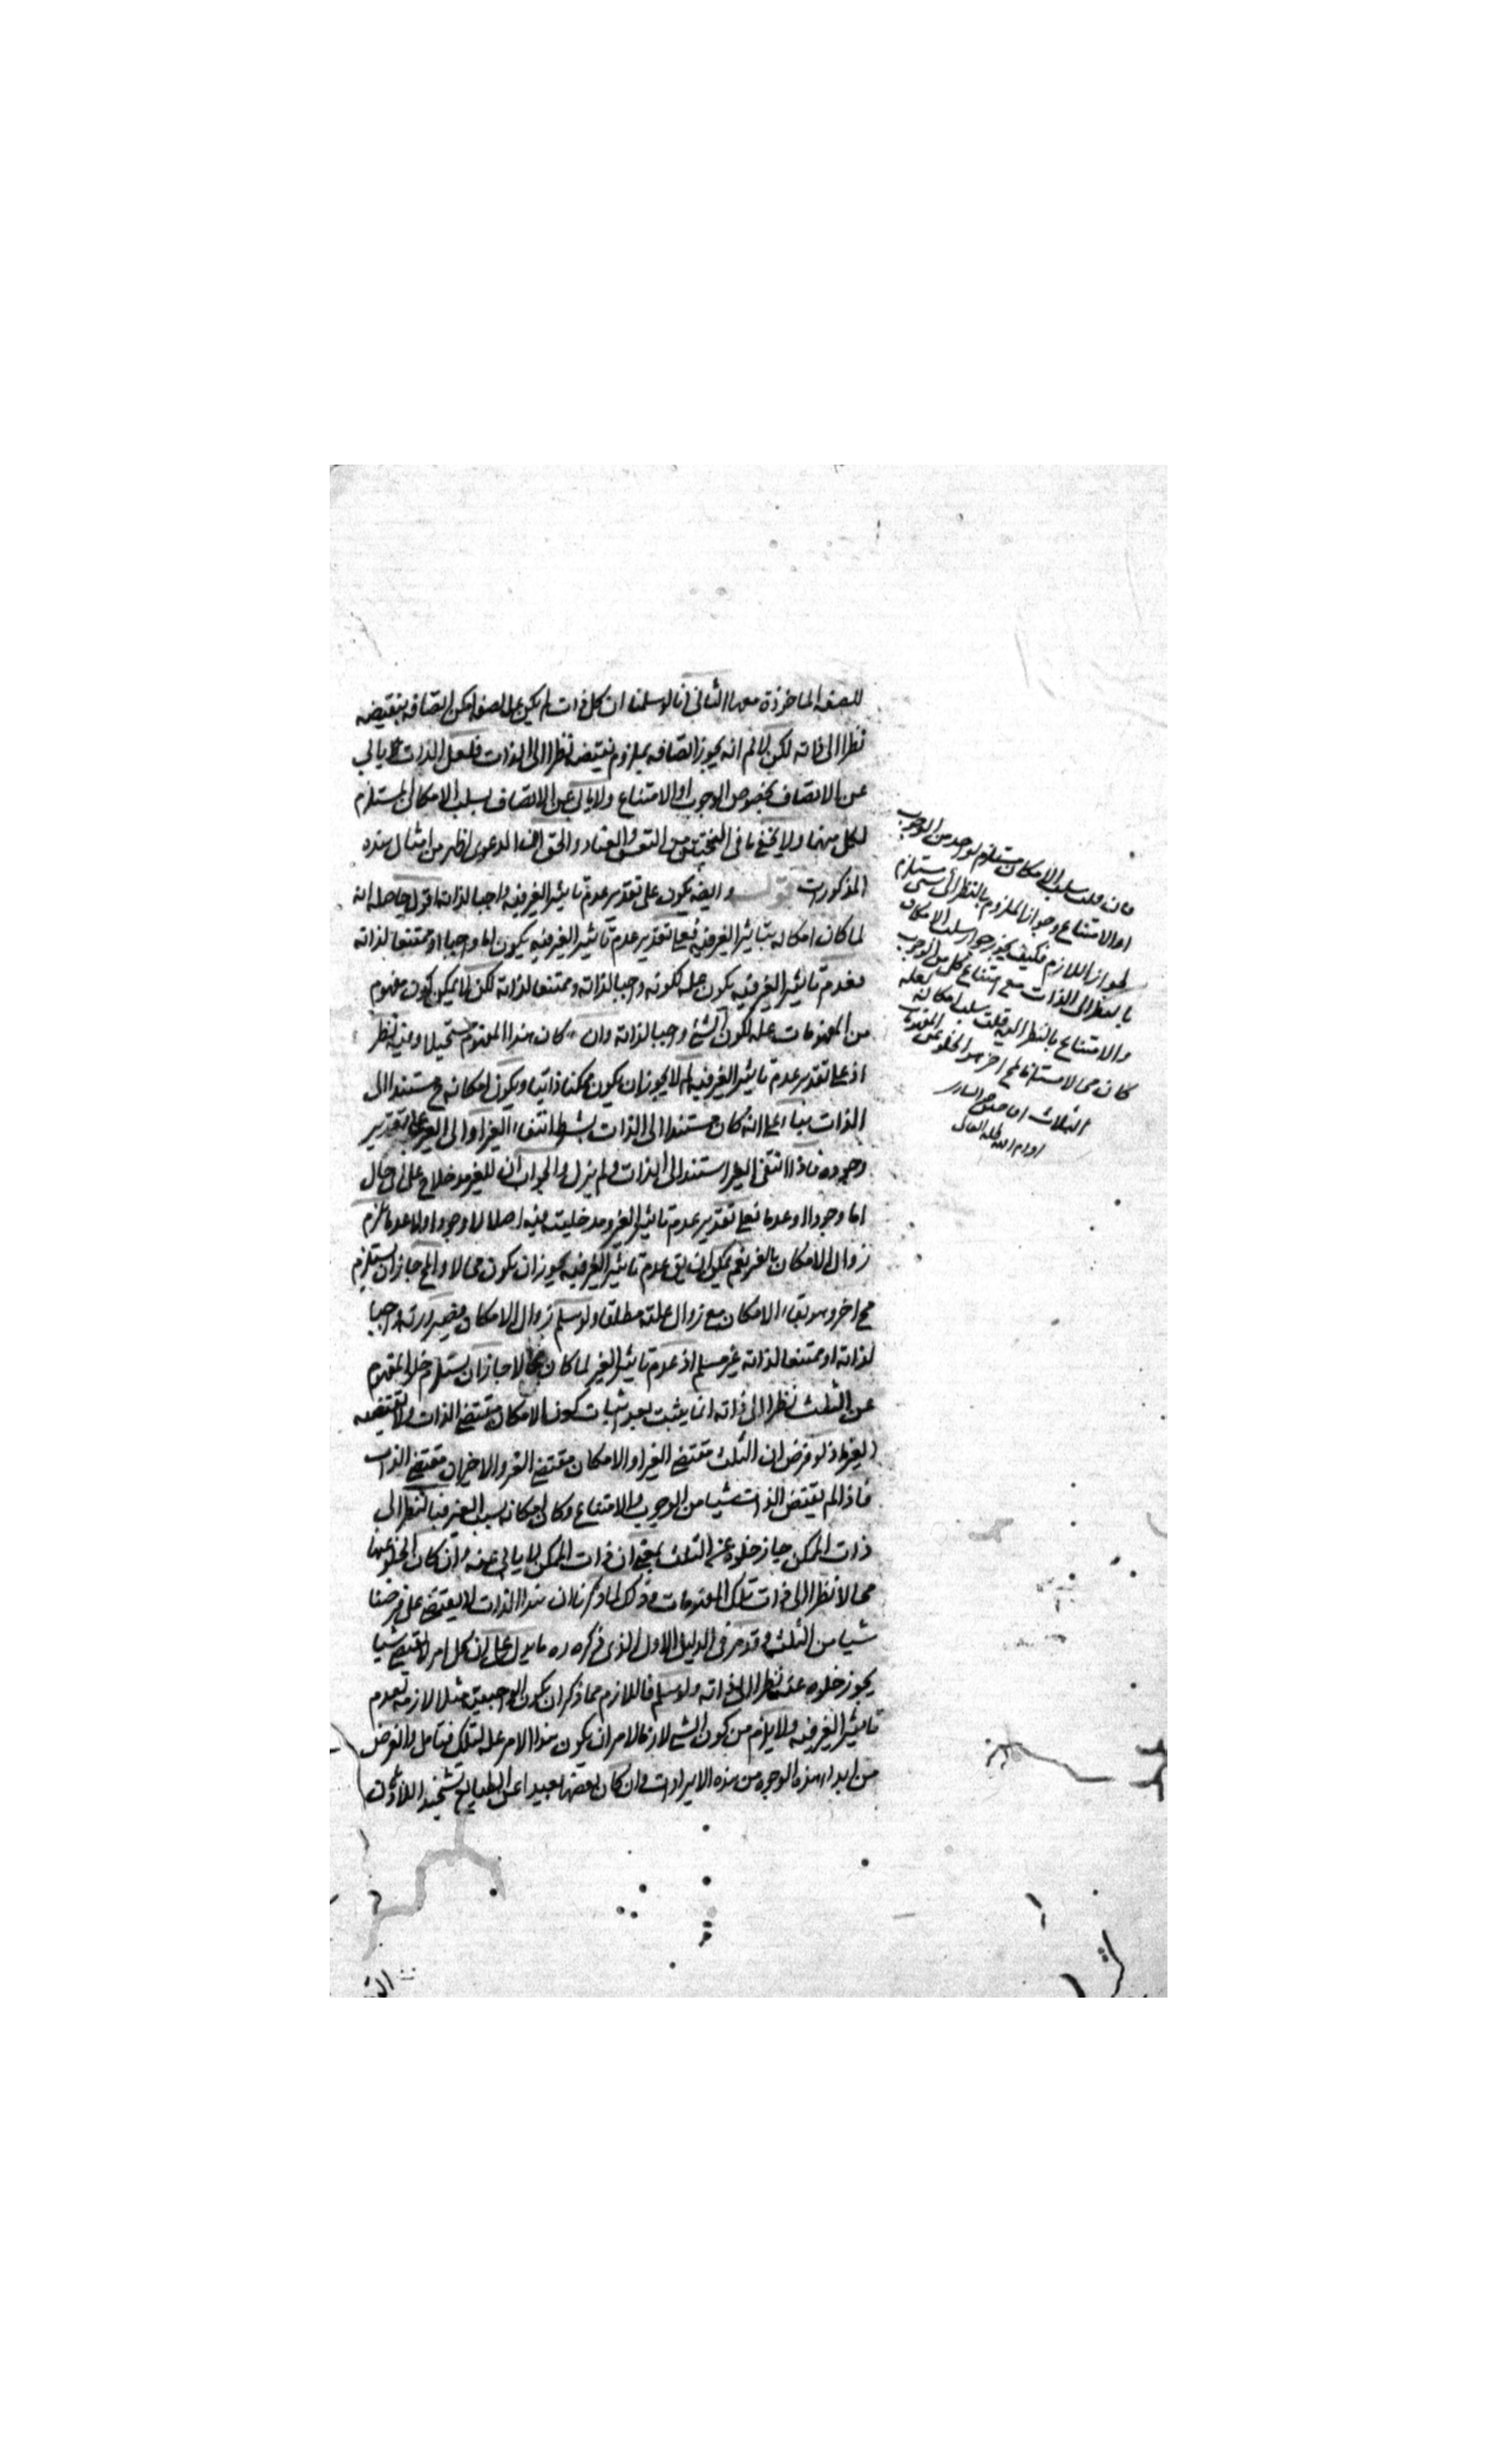 للصفة الماخوذة معها الثانى انا لو سلمنا ان كل ذات لم يكن علة لصفة امكن اتصافه بنقيضه
نظرا الى ذاته لكن لا نم انه يجوز اتصافه بملزوم نقيضه نظرا الى الذات فلعل الذات يابى
عن الاتصاف بخصوص الوجوب او الامتناع ولا يابى عن الاتصاف بسلب الامكان المستلزم
لكل منهما ولا يخفى ما فى التحقيق من التعسف والعناد والحق ان الدعوى اظهر من امثال هذه
المذكورات قوله وايضا يكون على تقدير عدم تاثير الغير فيه واجبا لذاته اقول حاصله انه
لما كان امكانه بتاثير الغير فيه فعلى تقدير عدم تاثير الغير فيه يكون اما واجبا او ممتنعا لذاته
فعدم تاثير الغير فيه يكون علة لكونه واجبا لذاته وممتنعا لذاته لكن لا يمكن كون مفهوم
من المفهومات علة لكون الشئ واجبا لذاته وان كان هذا المفهوم مستحيلا وفيه نظر
اذ على تقدير عدم تاثير الغير فيه لم لا يجوز ان يكون ممكنا ذاتيا ويكون امكانه ح مستندا الى
الذات بناء على انه كان مستندا الى الذات بشرط انتفاء الغير او الى الغير على تقدير
وجوده فاذا انتفى الغير استند الى الذات ولم يزل والجواب ان للغير مدخلا ح على اى حال
اما وجودا او عدما فعلى تقدير عدم تاثير الغير ومدخليته فيه اصلا لا وجودا ولا عدما يلزم
زوال الامكان بالغير نعم يمكن ان يق عدم تاثير الغير فيه يجوز ان يكون محالا والمح جاز ان يستلزم
مح اخر وهو بقاء الامكان مع زوال علته مطلقا ولو سلم زوال الامكان فصيرورته واجبا
لذاته او ممتنعا لذاته غير مسلم اذ عدم تاثير الغير لما كان محالا جاز ان يستلزم خلو المفهوم
عن الثلث نظرا الى ذاته انما يثبت بعد اثبات كون الامكان مقتضى الذات ولا يقتضيه
الغير اذ لو فرض ان الثلث مقتضى الغير او الامكان مقتضى الغير والاخيران مقتضى الذات
فاذا لم يقتض الذات شيئا من الوجوب والامتناع وكان امكانه بسبب الغير فبالنظر الى
ذات الممكن جاز خلوه عن الثلث بمعنى ان ذات الممكن لا يابى عنه وان كان الخلو عنها
محالا نظرا الى ذات تلك المفهومات وذلك لما ذكرنا ان هذا الذات لا يقتضى على فرضنا
شيئا من الثلث وقد مر فى الدليل الاول الذى ذكره ره ما يدل على ان كل امر لا يقتضى شيئا
يجوز خلوه عنه نظرا الى ذاته ولو سلم فاللازم مما ذكر ان يكون الواجبية مثلا لازمة لعدم
تاثير الغير فيه ولا يلزم من كون الشئ لازما لامر ان يكون هذا الامر علة لذلك فتامل والغرض
من ابداء هذه الوجوه من هذه الايرادات وان كان بعضها بعيدا عن الطبايع تشحيذ
فان قلت سلب الامكان مستلزم لواحد من الوجوب
او الامتناع وجواز الملزوم بالنظر الى شئ يستلزم
لجواز اللازم فكيف يجوز جواز سلب الامكان
بالنظر الى الذات مع امتناع كل من الوجوب
والامتناع بالنظر اليه قلت سلب امكانه لعله
كان محالا مستلزما لمح اخر هو الخلو عن المفهومات
الثلاث
ادام الله ظله العالى